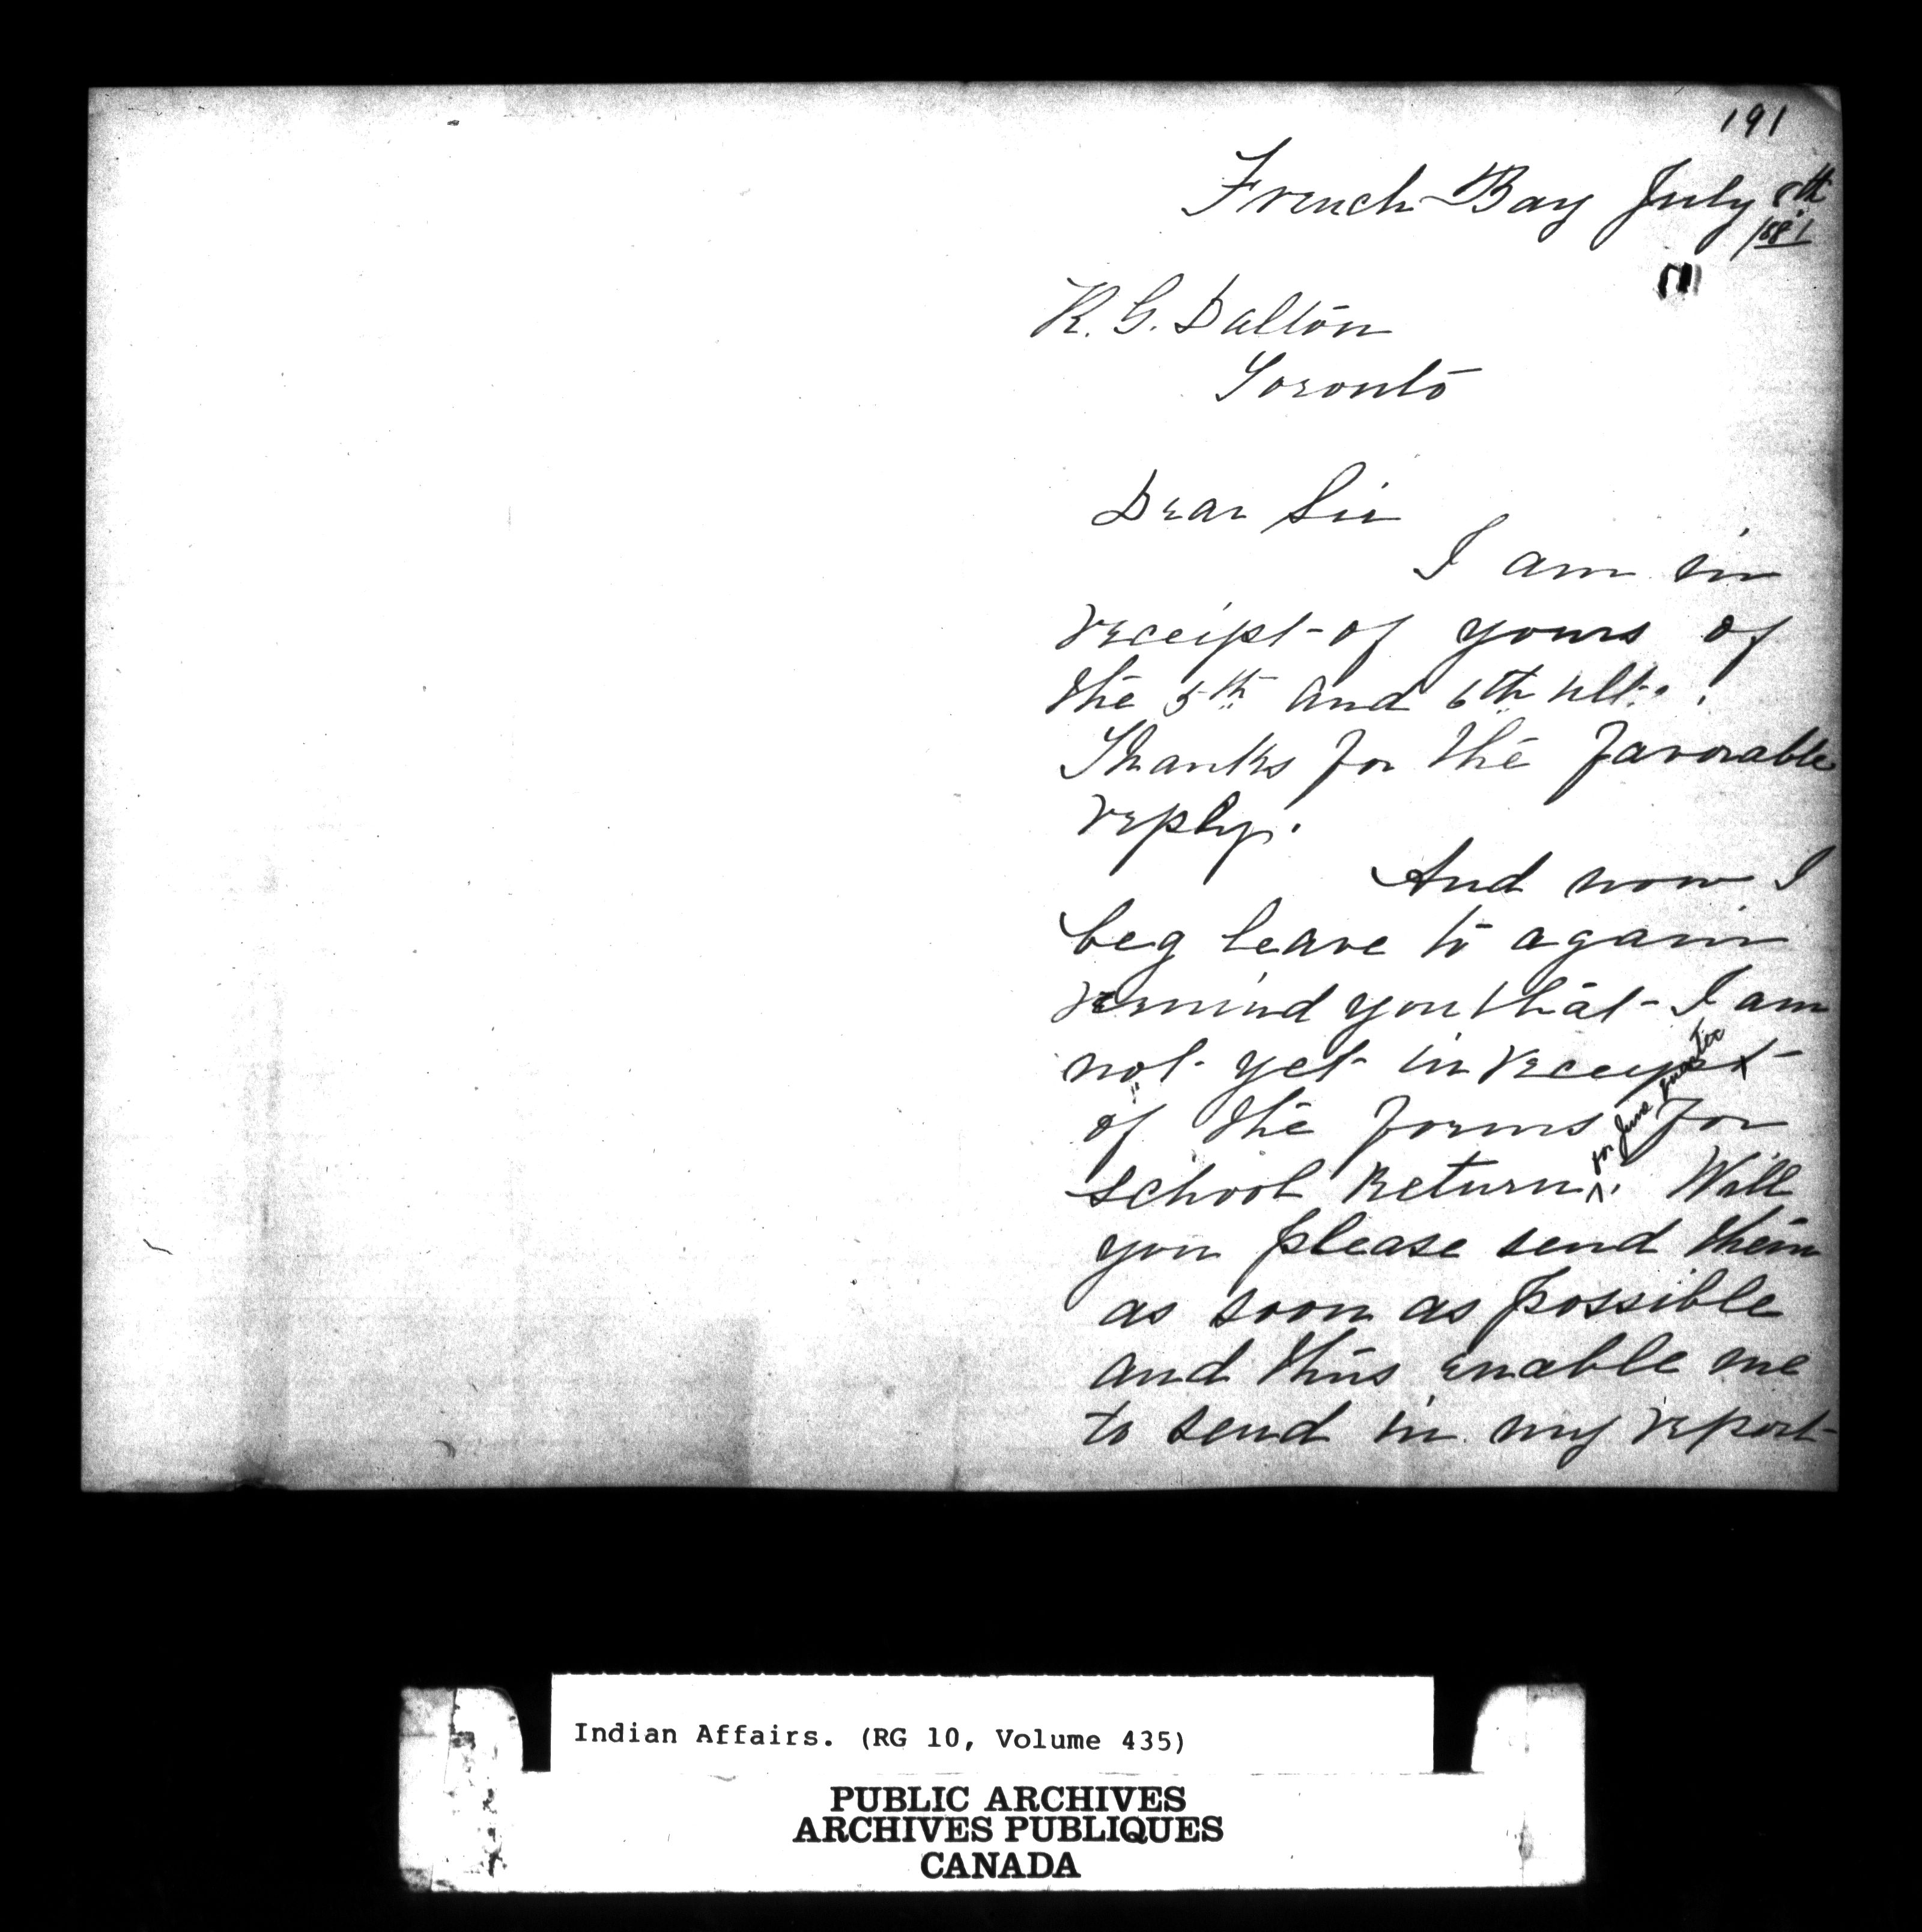 191
French Bay July 8th
1881
R. G. Dalton
Toronto
Dear Sir
I am in
receipt of yours of
the 5th and 6th ult.
Thanks for the favorable
reply.
And now I
beg leave to again
remind you that I am
not yet in receipt
of the forms for
school Return for June quarter. Will
you please send them
as soon as possible
and thus enable me
to send in my report
Indian Affairs. (RG 10, Volume 435)
PUBLIC ARCHIVES
ARCHIVES PUBLIQUES
CANADA